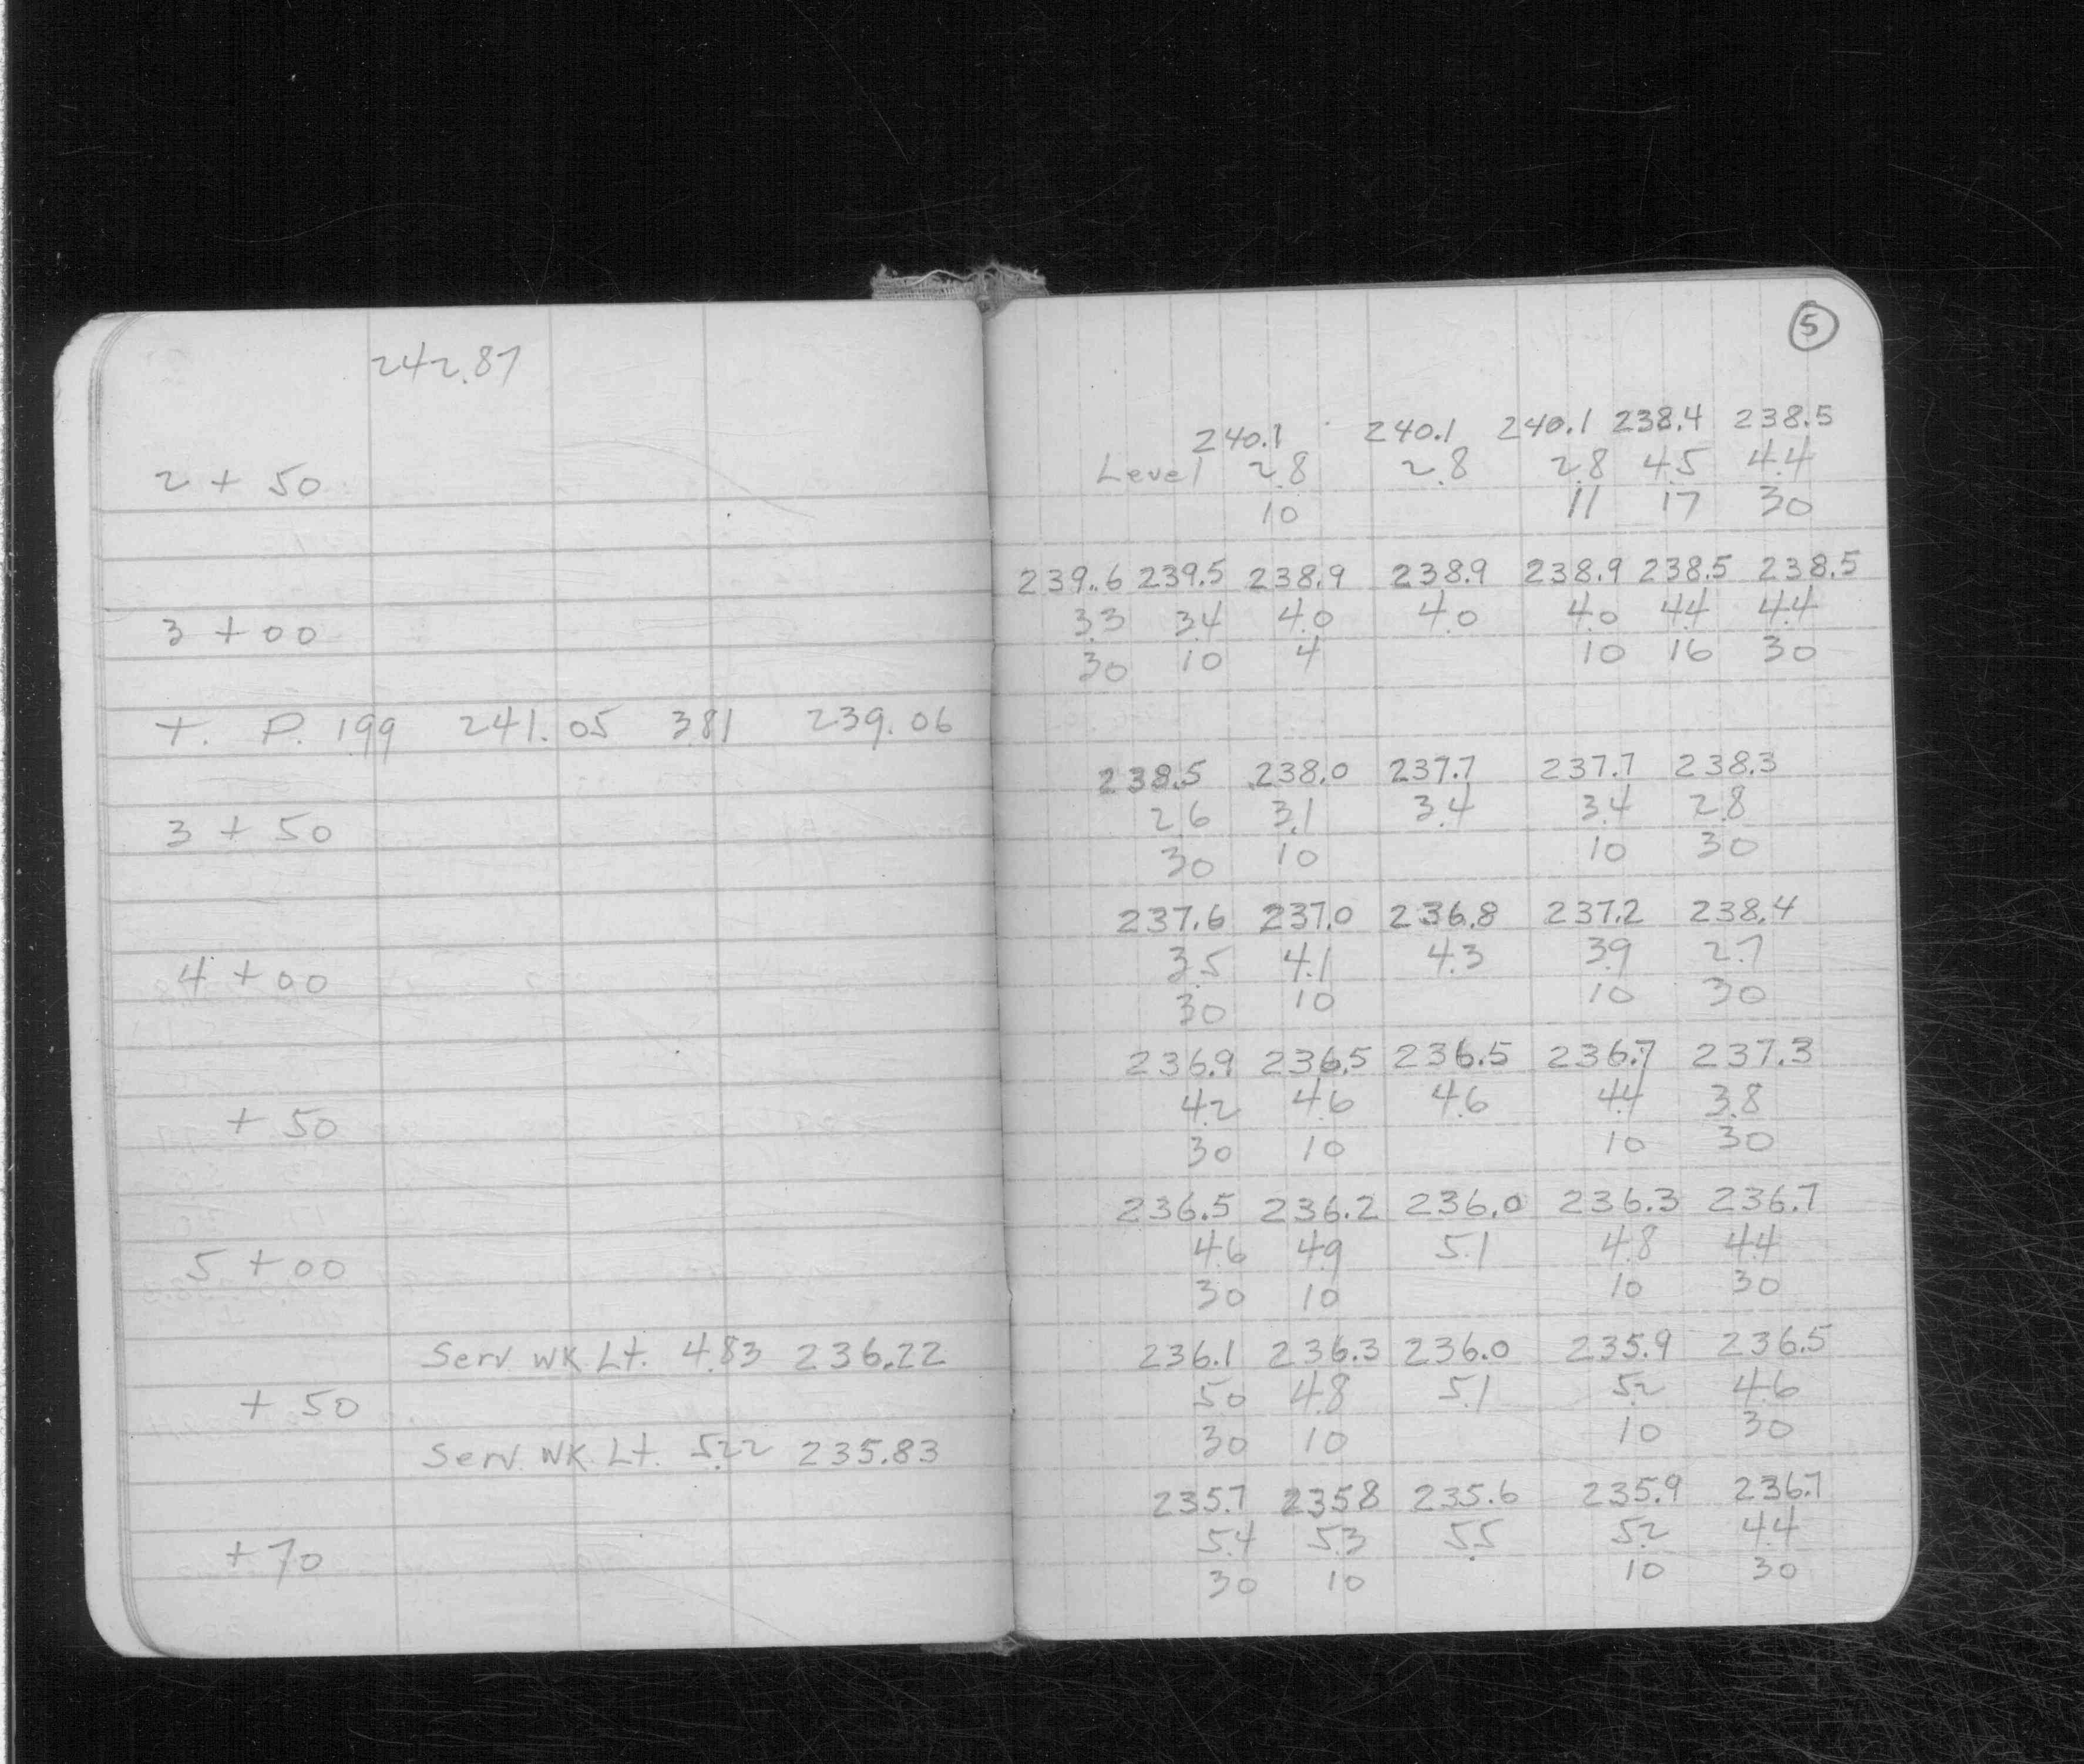 242.87
2 + 50
3 + 00
T. P. 1.99 241.05 3.81 239.06
3 + 50
4 + 00
+ 50
5 + 00
Serv WK Lt. 4.83 236.22
+ 50
Serv. WK. Lt. 5.22 235.83
+ 70
5
240.1 240.1 240.1 238.4 238.5
Level 2.8 2.8 2.8 4.5 4.4
10 11 17 30
239.6 239.5 238.9 238.9 238.9 238.5 238.5
3.3 3.4 4.0 4.0 4.0 4.4 4.4
30 10 4 10 16 30
238.5 238.0 237.7 237.7 238.3
2.6 3.1 3.4 3.4 2.8
30 10 10 30
237.6 237.0 236.8 237.2 238.4
3.5 4.1 4.3 3.9 2.7
30 10 10 30
236.9 236.5 236.5 236.7 237.3
4.2 4.6 4.6 4.4 3.8
30 10 10 30
236.5 236.2 236.0 236.3 236.7
4.6 4.9 5.1 4.8 4.4
30 10 10 30
236.1 236.3 236.0 235.9 236.5
5.0 4.8 5.1 5.2 4.6
30 10 10 30
235.7 235.8 235.6 235.9 236.7
5.4 5.3 5.5 5.2 4.4
30 10 10 30